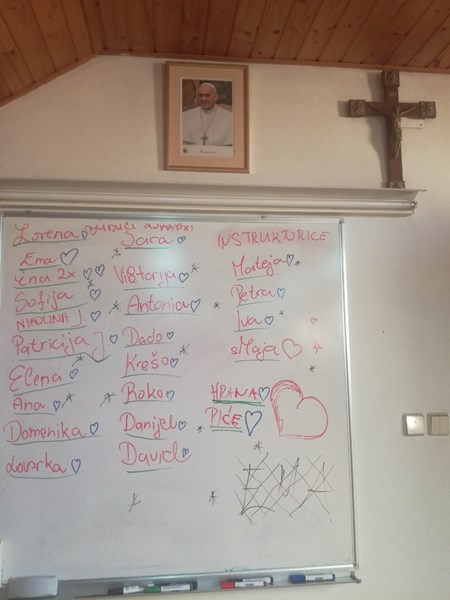 Lorena
Ema
Ena 2x
Sofija
NIKOLINA J.
Patricija J
Elena
Ana
Domenika
Lovorka
Sara
Viktorija
Antonia
Dado
Krešo
Roko
Danijel
David
INSTRUKTORICE
Mateja
Petra
Iva
sMaja
HRANA
PIĆE